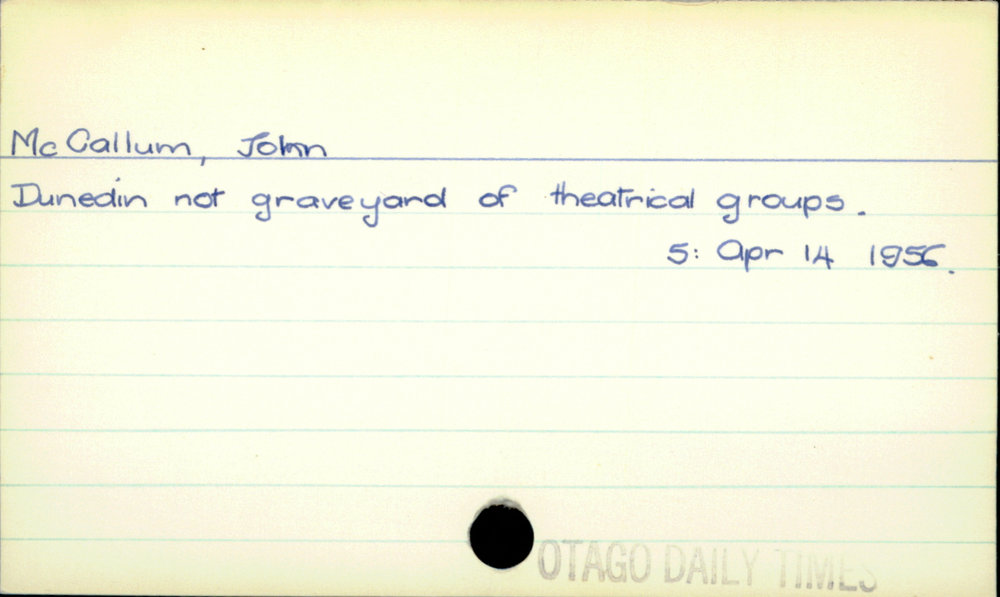 McCallum, John
Dunedin not graveyard of theatrical groups.
5: Apr 14 1956.
OTAGO DAILY TIMES